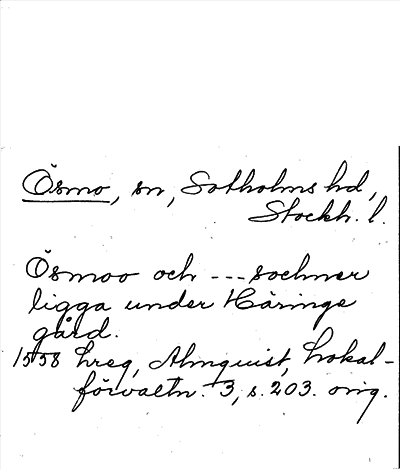 Ösmo, sn, Sotholms hd,
Stockh. l.
Ösmoo och --- sochner
ligga under Häringe
gård.
1558 hreg, Almquist, Lokal-
förvaltn. 3, s. 203. orig.